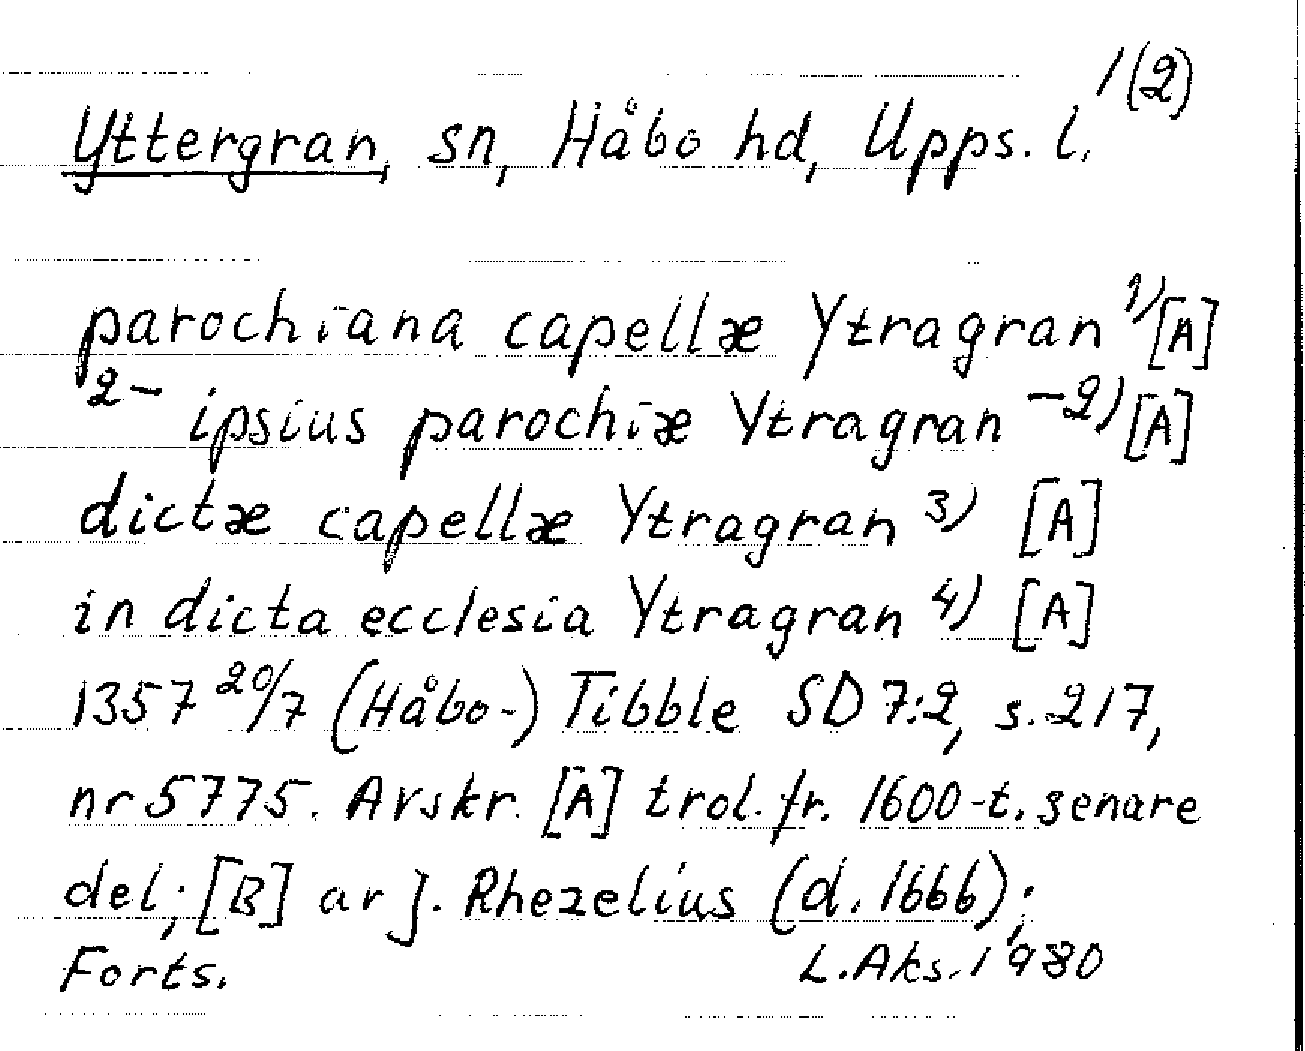 1(2)
Yttergran, sn, Håbo hd, Upps. l.
parochiana capellæ Ytragran 1) [A]
2- ipsius parochiæ Ytragran -2) [A]
dictæ capellæ Ytragran 3) [A]
in dicta ecclesia Ytragran 4) [A]
1357 20/7 (Håbo-) Tibble SD 7:2, s. 217,
nr 5775. Avskr. [A] trol. fr. 1600-t. senare
del; [B] av J. Rhezelius (d. 1666);
Forts. L. Aks. 1980